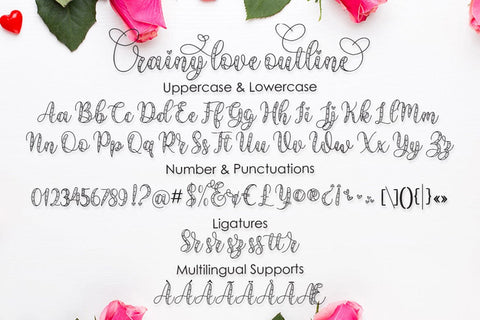 rainy love outline
Uppercase & Lowercase
Aa Bb Cc Dd Ee Ff Gg Hh Ii Jj Kk Ll Mm
Nn Oo Pp Qq Rr Ss Tt Uu Vv Ww Xx Yy Zz
Number & Punctuations
0123456789!?@#$%&€£Y©®¿¡ [\](){|}«»
Ligatures
Multilingual Supports